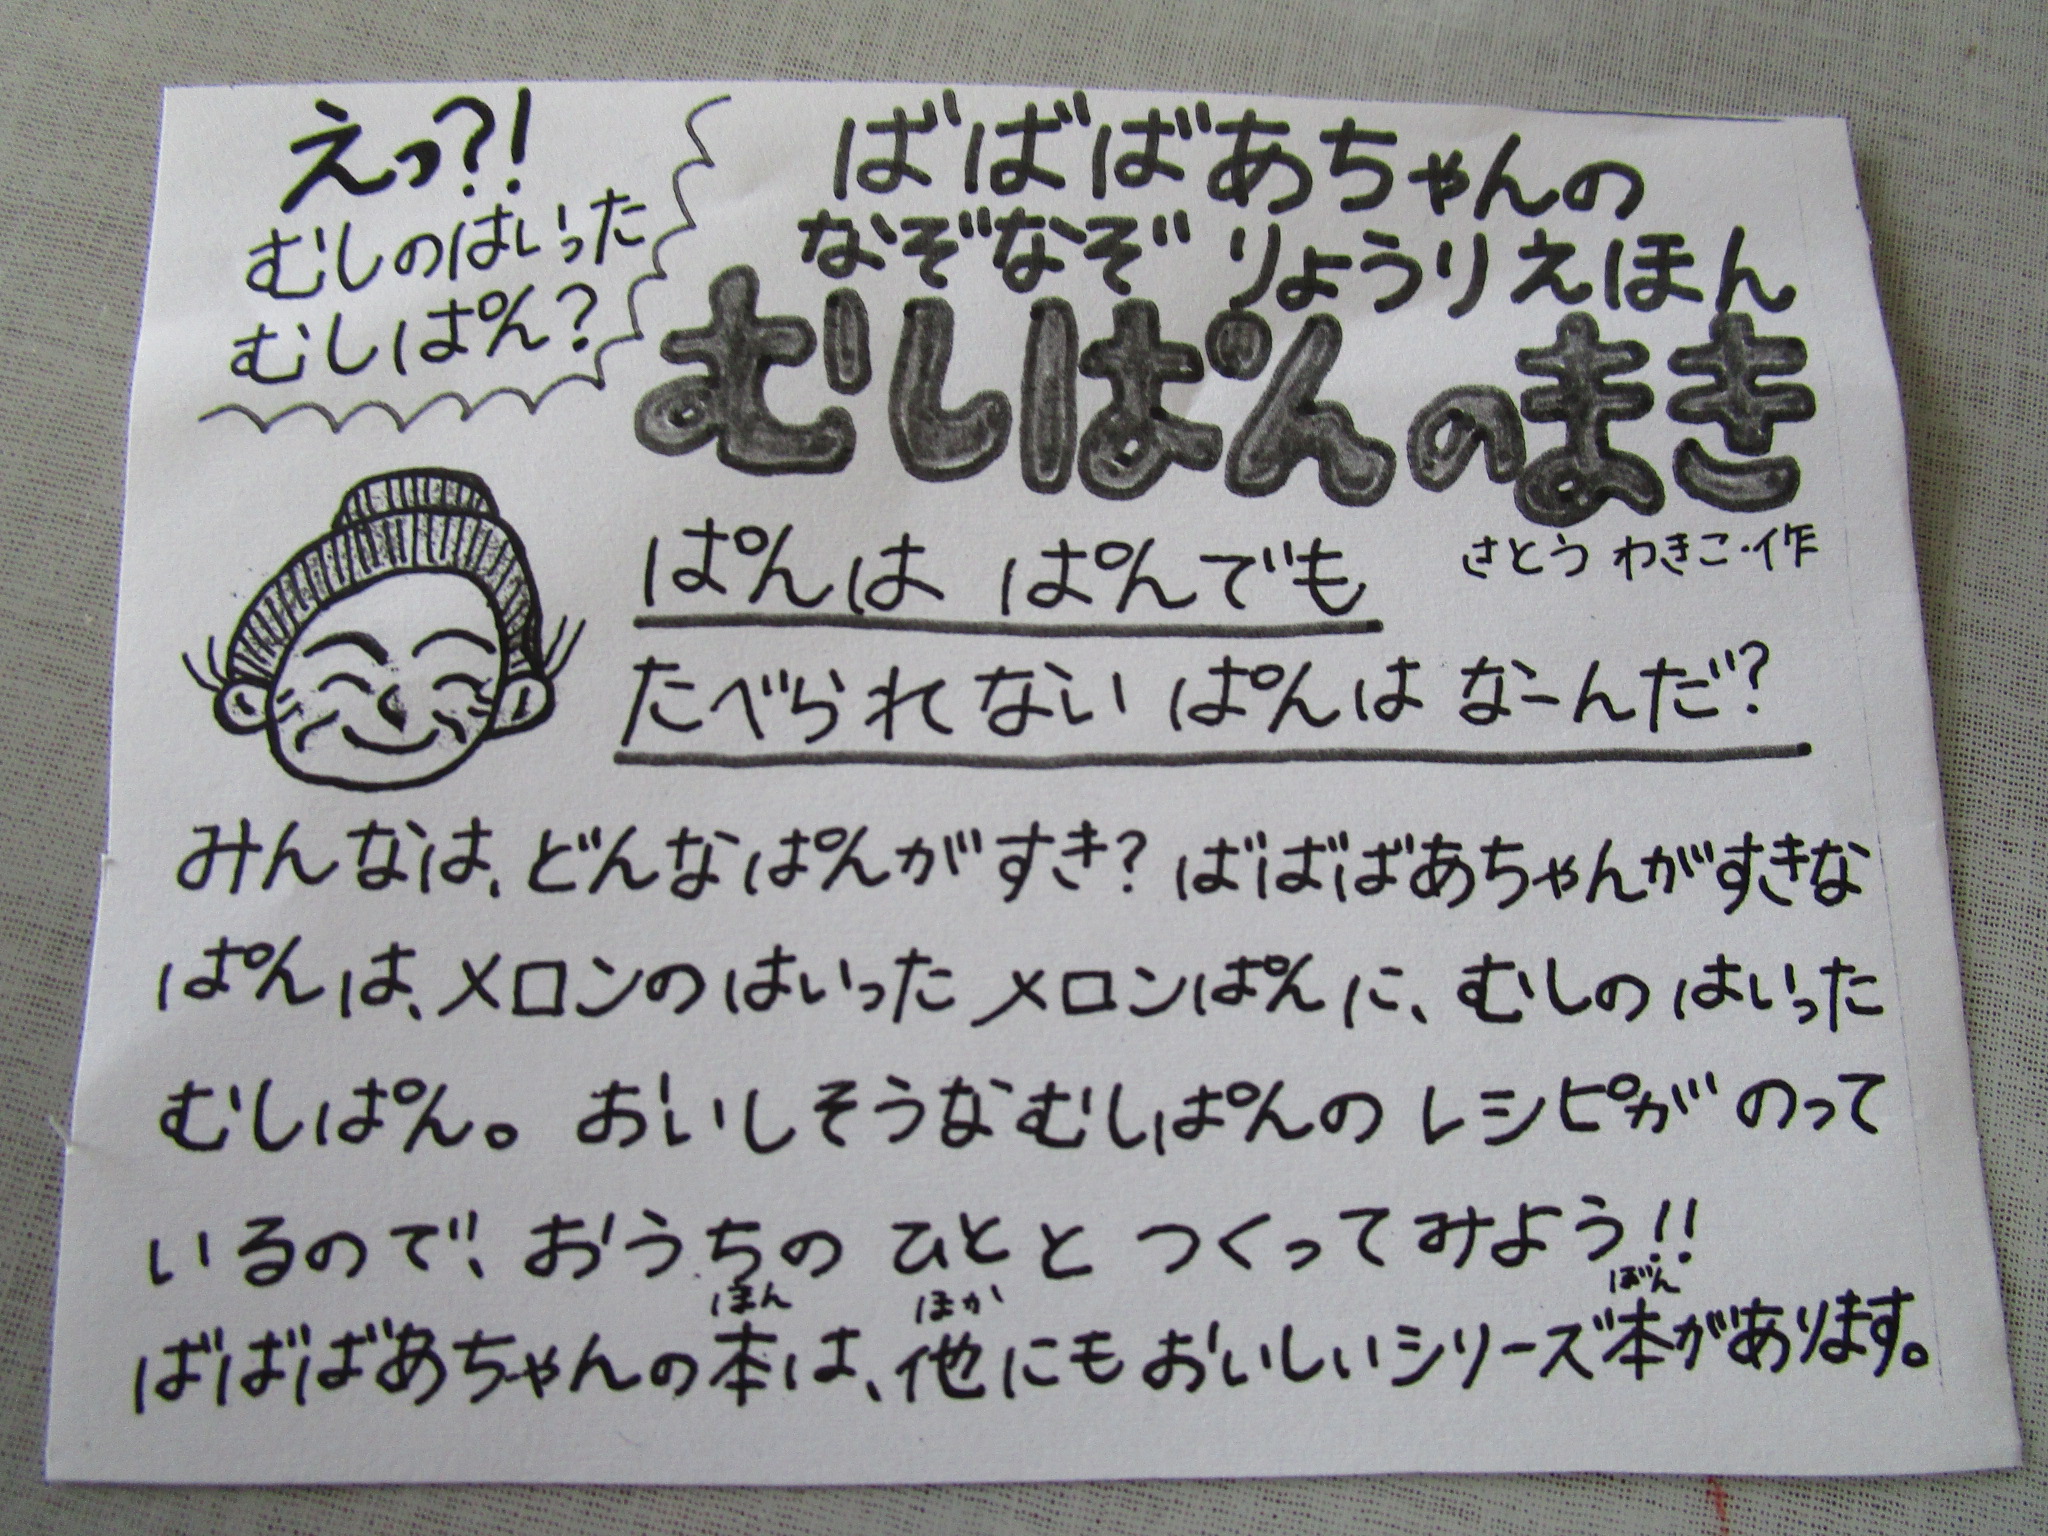 えっ?!
むしのはいった
むしぱん?
ばばばあちゃんの
なぞなぞ りょうりえほん
むしぱんのまき
さとう わきこ・作
ぱんは ぱんでも
たべられない ぱんは なーんだ?
みんなは、どんなぱんがすき? ばばばあちゃんがすきな
ぱんは、メロンのはいったメロンぱんに、むしのはいった
むしぱん。おいしそうなむしぱんのレシピがのって
いるので、おうちのひとと つくってみよう!!
ほん ほか ぼん
ばばばあちゃんの本は、他にもおいしいシリーズ本があります。